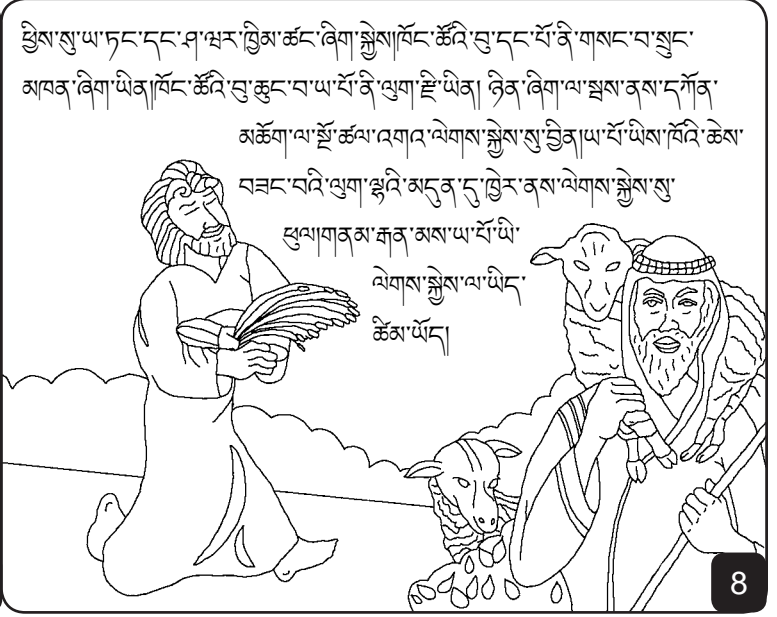 ཕྱིས་སུ་ཡ་ཏང་དང་ཤ་ཝར་ཁྱིམ་ཚང་ཞིག་སྐྱེས།ཁོང་ཚོའི་བུ་དང་པོ་ནི་གསང་བ་སྲུང་
མཁན་ཞིག་ཡིན།ཁོང་ཚོའི་བུ་ཆུང་བ་ཡ་པོ་ནི་ལུག་རྫི་ཡིན། ཉིན་ཞིག་ལ་སྦས་ནས་དཀོན་
མཆོག་ལ་སྔོ་ཚལ་འགའ་ལེགས་སྐྱེས་སུ་བྱིན།ཡ་པོ་ཡིས་ཁོའི་ཆེས་
བཟང་བའི་ལུག་ལྷའི་མདུན་དུ་ཁྱེར་ནས་ལེགས་སྐྱེས་སུ་
ཕུལ།གནམ་རྒན་མས་ཡ་པོ་ཡི་
ལེགས་སྐྱེས་ལ་ཡིད་
ཚིམ་ཡོད།
8